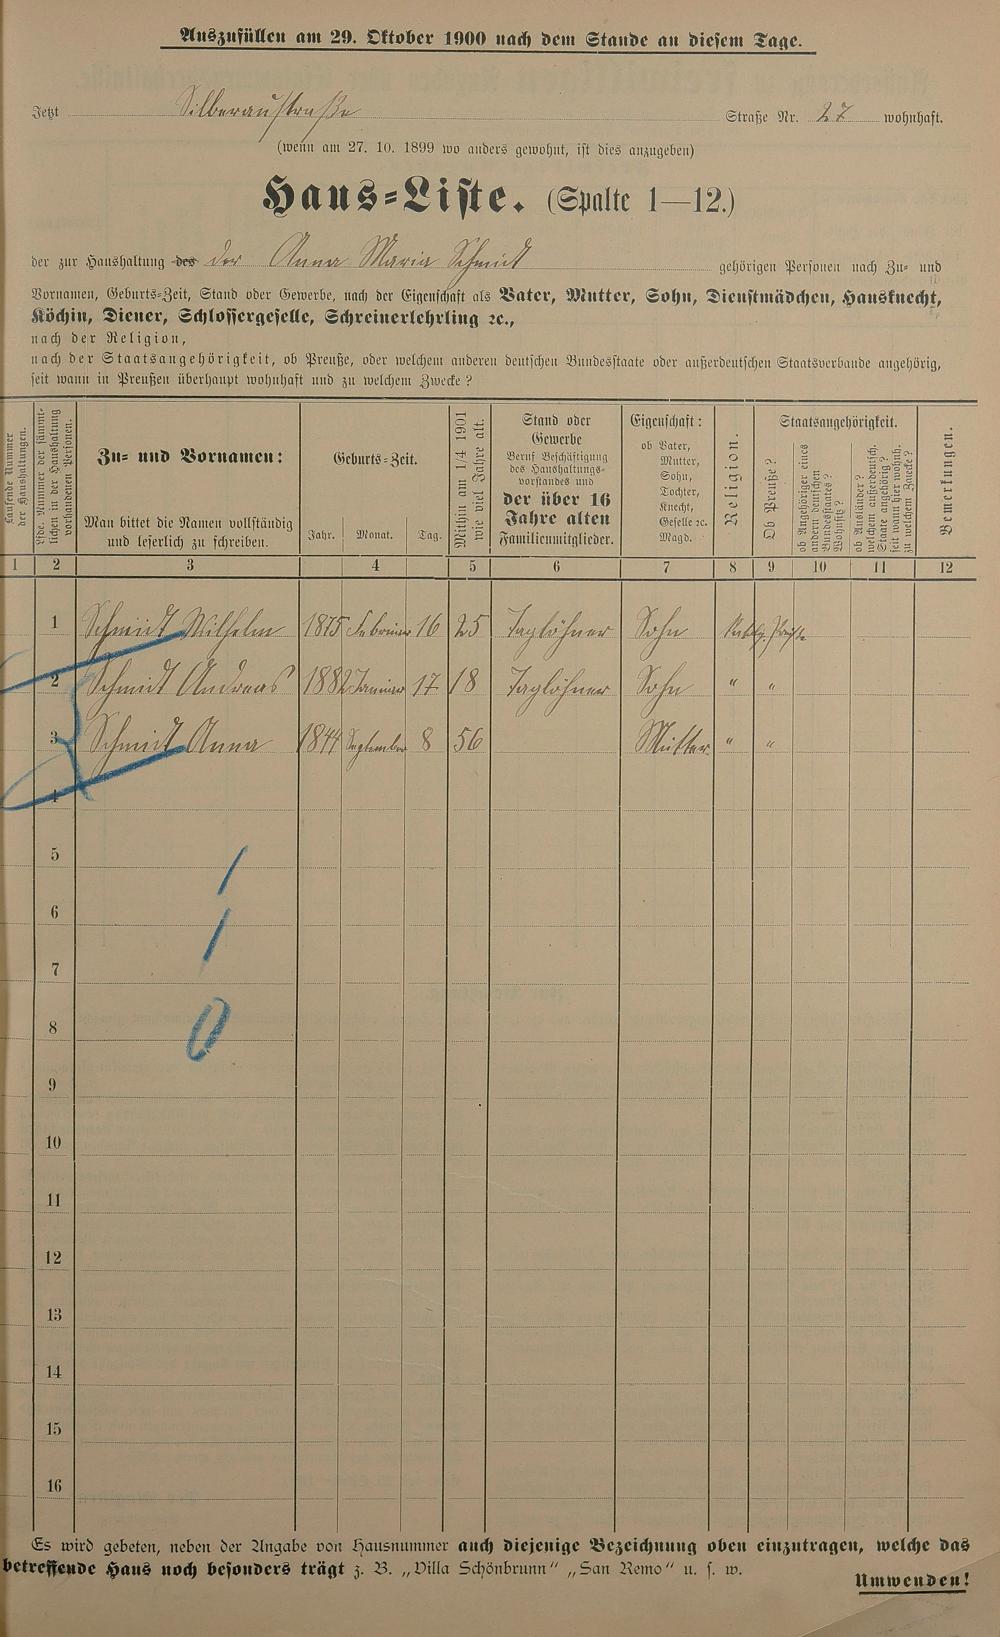 Auszufüllen am 29. Oktober 1900 nach dem Stande an diesem Tage.
Jetzt Silberaustraße Straße Nr. 27 wohnhaft.
(wenn am 27. 10. 1899 wo anders gewohnt, ist dies anzugeben)
Haus-Liste. (Spalte 1—12.)
der zur Haushaltung des der Anna Maria Schmidt gehörigen Personen nach Zu- und
Vornamen, Geburts-Zeit, Stand oder Gewerbe, nach der Eigenschaft als Vater, Mutter, Sohn, Dienstmädchen, Hausknecht,
Köchin, Diener, Schlossergeselle, Schreinerlehrling ꝛc.,
nach der Religion,
nach der Staatsangehörigkeit, ob Preuße, oder welchem anderen deutschen Bundesstaate oder außerdeutschen Staatsverbande angehörig,
seit wann in Preußen überhaupt wohnhaft und zu welchem Zwecke?
Laufende Nummer
der Haushaltungen.
Lfde. Nummer der sämmt-
lichen in der Haushaltung
vorhandenen Personen.
Zu- und Vornamen:
Man bittet die Namen vollständig
und leserlich zu schreiben.
Geburts-Zeit.
Jahr. Monat. Tag.
Mithin am 1/4 1901
wie viel Jahre alt.
Stand oder
Gewerbe
Beruf Beschäftigung
des Haushaltungs-
vorstandes und
der über 16
Jahre alten
Familienmitglieder.
Eigenschaft:
ob Vater,
Mutter,
Sohn,
Tochter,
Knecht,
Geselle ꝛc.
Magd.
Religion.
Staatsangehörigkeit.
Ob Preuße?
ob Angehöriger eines
andern deutschen
Bundesstaates?
Wohnsitz?
ob Ausländer?
welchem außerdeutsch.
Staate angehörig?
seit wann hier wohnh.
zu welchem Zwecke?
Bemerkungen.
1 2 3 4 5 6 7 8 9 10 11 12
1 Schmidt Wilhelm 1875 Februar 16 25 Taglöhner Sohn
2 Schmidt Andreas 1882 Januar 17 18 Taglöhner Sohn " "
3 Schmidt Anna 1844 September 8 56 Mutter " "
4
5
6
7
8
9
10
11
12
13
14
15
16
Es wird gebeten, neben der Angabe von Hausnummer auch diejenige Bezeichnung oben einzutragen, welche das
betreffende Haus noch besonders trägt z. B. „Villa Schönbrunn" „San Remo" u. s. w.
Umwenden!